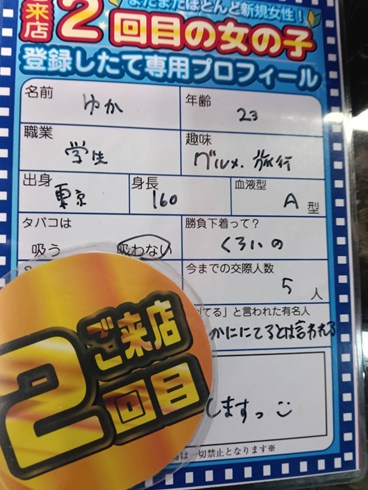 まだまだほとんど新規女性!
来店2回目の女の子
登録したて専用プロフィール
名前 ゆか 年齢 23
職業 学生 趣味 グルメ、旅行
出身 東京 身長 160 血液型 A 型
タバコは 吸う 吸わない 勝負下着って? くろいの
今までの交際人数 5 人
てる」と言われた有名人
かににてるとは言われる
しますっ
ご来店
2回目
は一切禁止となります※